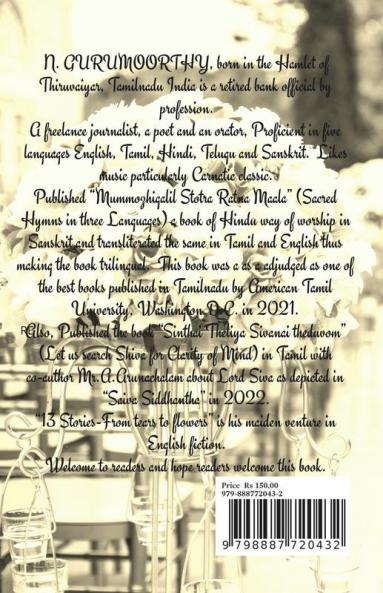 N. GURUMOORTHY, born in the Hamlet of
Thiruvaiyar, Tamilnadu India is a retired bank official by
profession.
A freelance journalist, a poet and an orator, Proficient in five
languages English, Tamil, Hindi, Telugu and Sanskrit. Likes
music particularly Carnatic classic.
Published "Mummoghigalil Stotra Ratna Maala" (Sacred
Hymns in three Languages) a book of Hindu way of worship in
Sanskrit and transliterated the same in Tamil and English thus
making the book trilingual. This book was a as a adjudged as one of
the best books published in Tamilnadu by American Tamil
University, Washington D.C. in 2021.
Also, Published the book "Sinthai Theliya Sivanai theduvom"
(Let us search Shiva for Clarity of Mind) in Tamil with
co-author Mr.A.Arunachalam about Lord Siva as depicted in
"Saiva Siddhantha" in 2022.
"13 Stories-From tears to flowers" is his maiden venture in
English fiction.
Welcome to readers and hope readers welcome this book.
Price Rs 150.00
979-888772043-2
9 798887 720432